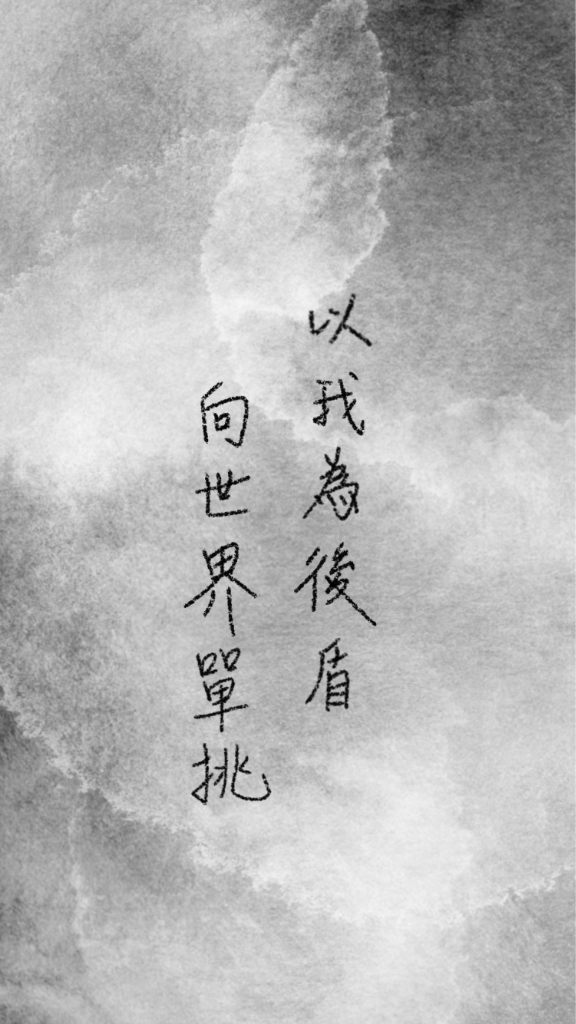 以我為後盾
向世界單挑